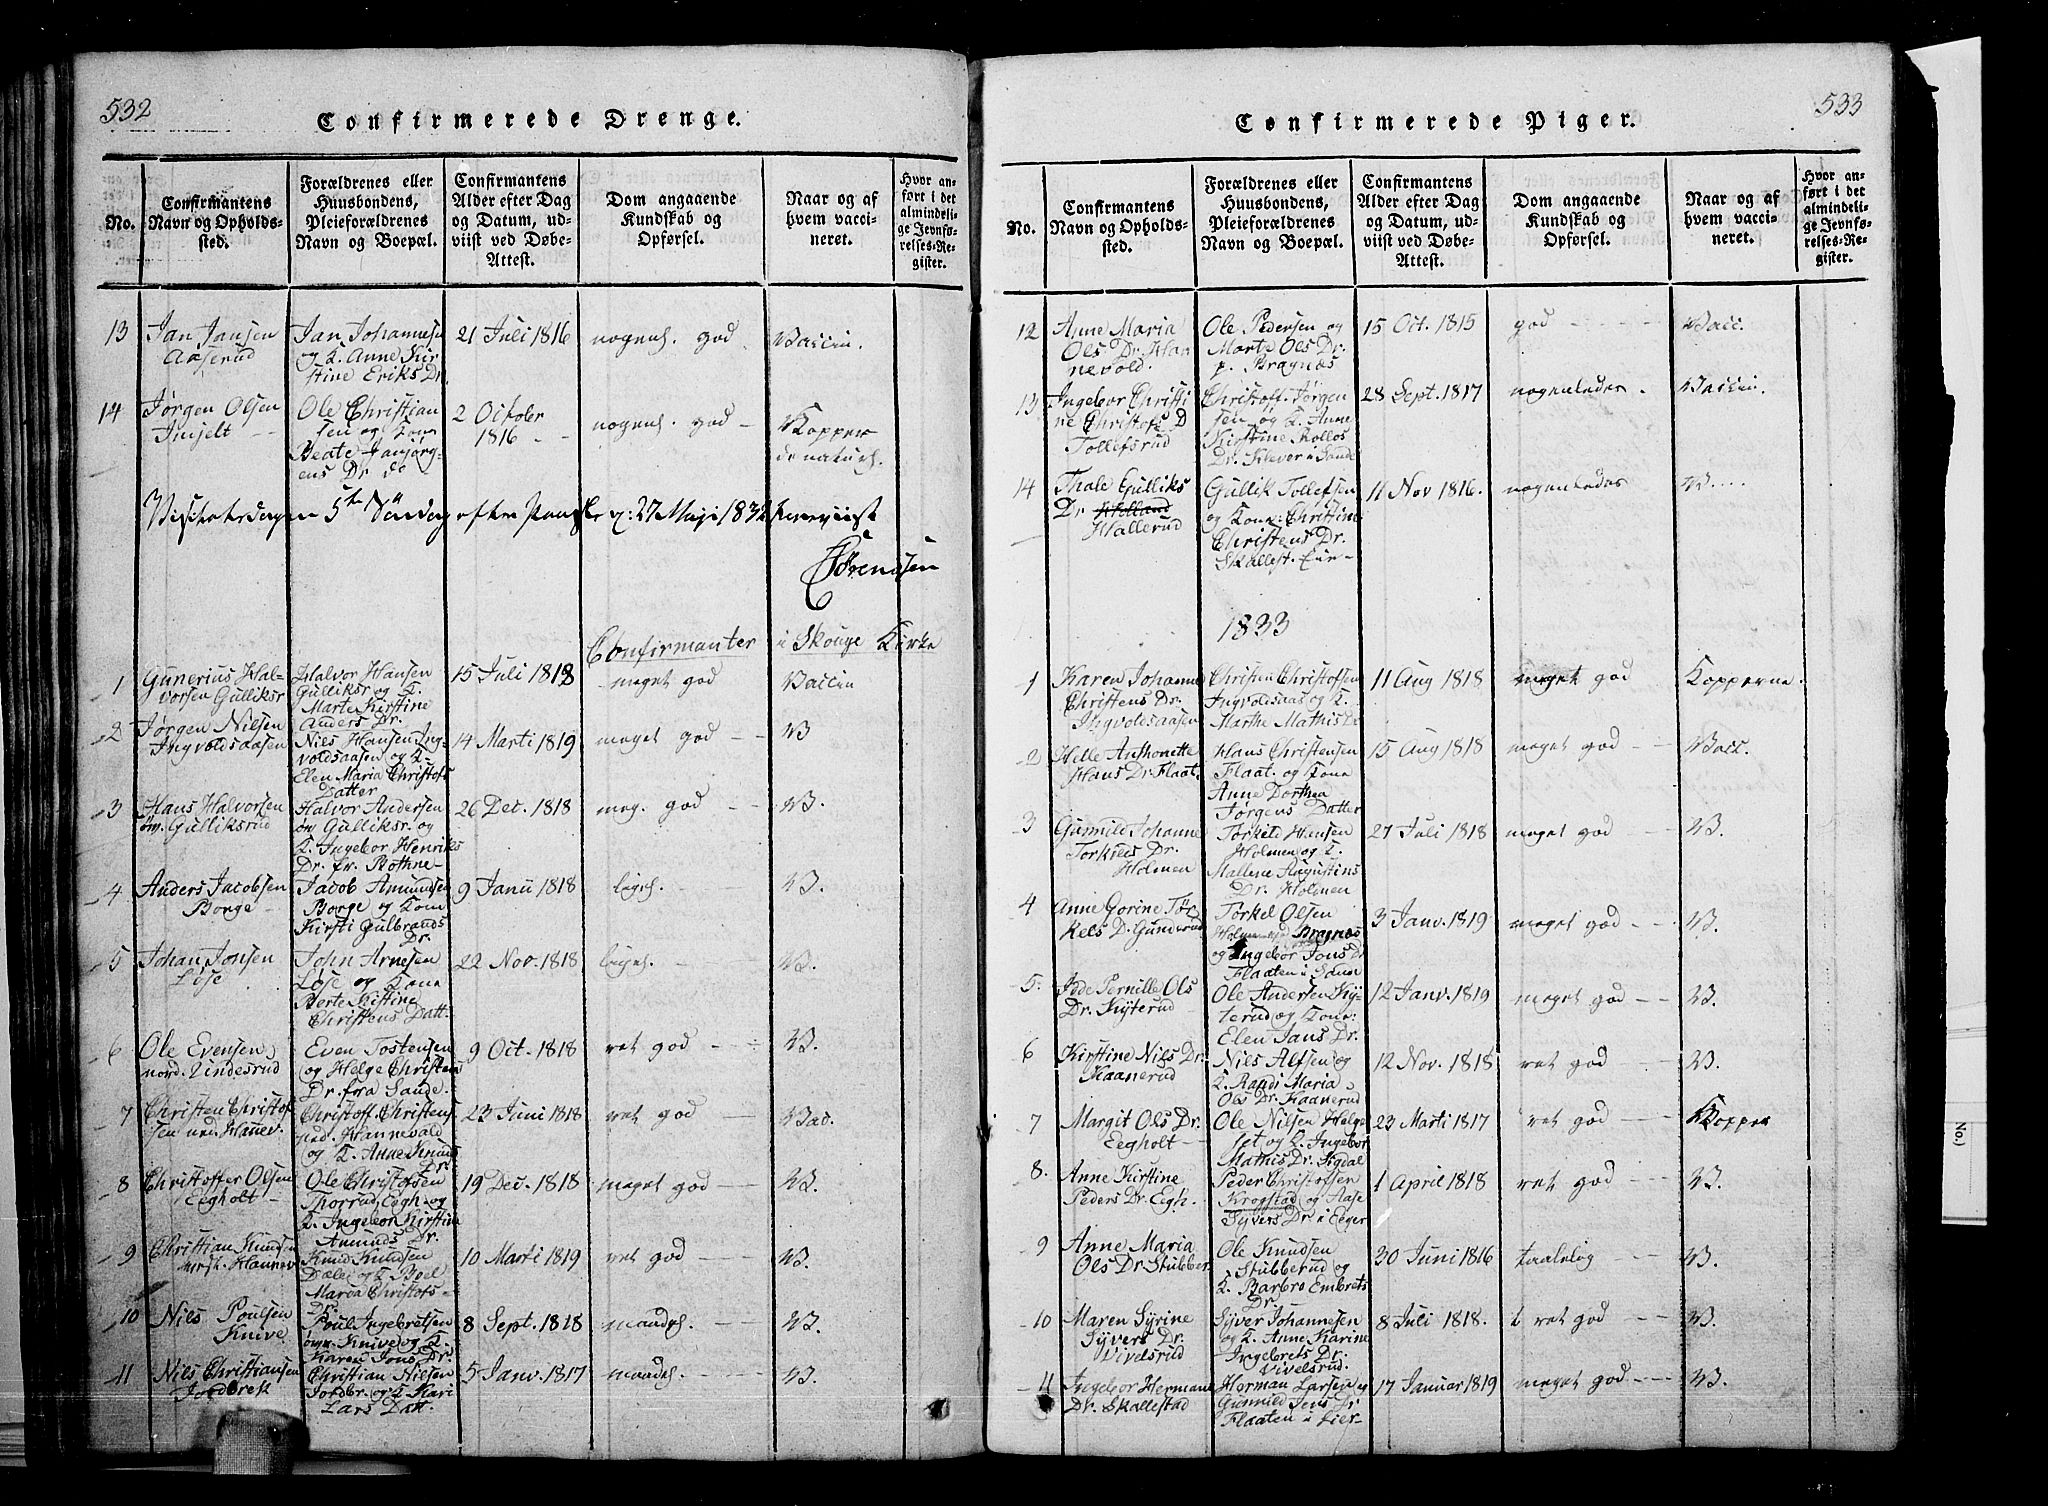 532
Confirmerede Drenge.
No.
Confirmantens
Navn og Opholds-
sted.
Forældrenes eller
Huusbondens,
Pleieforældrenes
Navn og Boepæl.
Confirmantens
Alder efter Dag
og Datum, ud-
viist ved Døbe-
Attest.
Dom angaaende
Kundskab og
Opførsel.
Naar og af
hvem vacci-
neret.
Hvor an-
ført i det
almindeli-
ge Jevnfø-
relses-Re-
gister.
13
Jan Jansen
Aaserud
Jan Johannesen
og K. Anne Kir
stine Eriks Dr.
21 Juli 1816
nogenl. god
Vaccin.
14
Jørgen Olsen
Injelt
Ole Christian
sen og Kone
Beate Janjørg-
ens Dr do
2 October
1816
nogenl. god
Kopper
de naturl.
5te Söndag efter Paaske 27 Maji 1832
Sørensen
Confirmanter i Skouge Kirke
1
Gunerius Hal-
vorsen Gulliksr
Halvor Hansen
Gulliksr og K.
Marte Kirstine
Anders Dr.
15 Juli 1818
meget god
Vaccin
2
Jørgen Nilsen
Ingvoldsaasen
Nils Hansen Ing-
voldsaasen og K.
Elen Maria Christofs
Datter
14 Marti 1819
meget god
V
3
Hans Halvorsen
øv. Gulliksrud
Halvor Andersen
øv Gulliksr. og
K. Ingebor Henriks
Dr. fr. Bothne
26 Dec. 1818
meg. god
V.
4
Anders Jacobsen
Borge
Jacob Amundsen
Borge og Kone
Kirsti Gulbrands
Dr.
9 Janu 1818
ligel.
V.
5
Johan Jonsen
Løse
John Arnesen
Løse og Kone
Berte Kistine
Christens Datt.
22 Nov. 1818
ligel.
V.
6
Ole Evensen
nord. Lindesrud
Even Tostensen
og Helge Christens
Dr. fra Sande.
9 Oct. 1818
ret god
V.
7
Christen Christof
sen ned. Hanev.
Christoff. Christens
ned. Hannevald
og K. Anne Knuds
Dr.
23 Juni 1818
ret god
Vac.
8
Christoffer Olsen
Eegholt
Ole Christofsen
Thorrud, Eegh. og
K. Ingebor Kirstine
Amunds Dr.
19 Dec. 1818
meget god
V.
9
Christian Knudsen
Hannev
Knud Knudsen
Dæli og K Boel
Maria Christofs-
Dr.
10 Marti 1819
ret god
V.
10
Nils Poulsen
Knive
Poul Ingebretsen
øvr. Knive og K.
Karen Jons Dr.
8 Sept. 1818
maadel.
V.
11
Nils Christiansen
Jordbrek
Christian Nielsen
Jordbr. og K Kari
Lars Datt.
5 Janv. 1817
maadel.
V.
533
Confirmerede Piger.
No.
Confirmantens
Navn og Opholds-
sted.
Forældrenes eller
Huusbondens,
Pleieforældrenes
Navn og Boepæl.
Confirmantens
Alder efter Dag
og Datum, ud-
viist ved Døbe-
Attest.
Dom angaaende
Kundskab og
Opførsel.
Naar og af
hvem vacci-
neret.
Hvor an-
ført i det
almindeli-
ge Jevnfø-
relses-Re-
gister.
12
Anne Maria
Ols. Dr. Han
nevold.
Ole Pedersen og
Marte Ols Dr.
p. Bragnæs
15 Oct. 1815
god
Vacc.
13
Ingebor Christi
ne Christofs D
Tollefsrud
Christoff. Jørgen
sen og K. Anne
Kirstine Rollos
Dr. Klever i Sande
28 Sept. 1817
nogenledes
Vaccin.
14
Thale Gulliks
Dr Holland
Hallerud
Gullik Tollefsen
og Kone: Christine
Christens Dr.
Skallest. Eier
11 Nov 1816.
nogenledes
V....
1833
1
Karen Johanne
Christens Dr.
Ingvoldsaasen
Christen Christofsen
Ingvoldsaas og K.
Marthe Mathis D
11 Aug 1818
meget god
Kopperne.
2
Helle Anthonette
Hans Dr. Flaat.
Hans Christensen
Flaat. og Kone
Anne Dorthea
Jørgens Datter
15 Aug 1818
meget god
Vacc.
3
Gunnild Johanne
Torkiels Dr.
Holmen
Torkild Hansen
Holmen og K.
Mallene Augustins
Dr. Holmen
27 Juli 1818
meget god
V.
4
Anne Gorine Tør
kels D. Gunderud
Torkel Olsen
Bragnæs
og Ingebor Jons D
Flaaten i Sande
3 Janv. 1819
meget god
V.
5.
Pernille Ols
Dr. Kyterud
Ole Andersen Ky-
terud og Kone:
Elen Jans Dr.
12 Janv. 1819
meget god
V.
6
Kirstine Nils Dr.
Kaanerud
Nils Alfsen og
K. Randi Maria
Ols Dr. Kaanerud
12 Nov. 1818
ret god
V.
7
Margit Ols Dr.
Eegholt
Ole Nilsen Helge
set og K. Ingebor
Mathis Dr. Sigdal
23 Marti 1817
ret god
Kopper
8.
Anne Kirstine
Peders Dr. Egh.
Peder Christofsen
Krogstad og Aase
Syvers Dr. i Eeger
1 April 1818
ret god
V.
9
Anne Maria
Ols Dr. Stubber
Ole Knudsen
Stubberud og
K. Barbro Embrets
Dr
20 Juni 1816
taalelig
V.
10
Maren Syrine
Syvers Dr.
Vivelsrud
Syver Johannesen
og K. Anne Karine
Ingebrets Dr.
Vivelsrud.
8 Juli 1818.
ret god
V.
11
Ingebor Hermans
Dr. Skallestad
Herman Larsen og
Gunnild Jens Dr
Flaaten i Lier
17 Januar 1819
meget god
V.
No.)